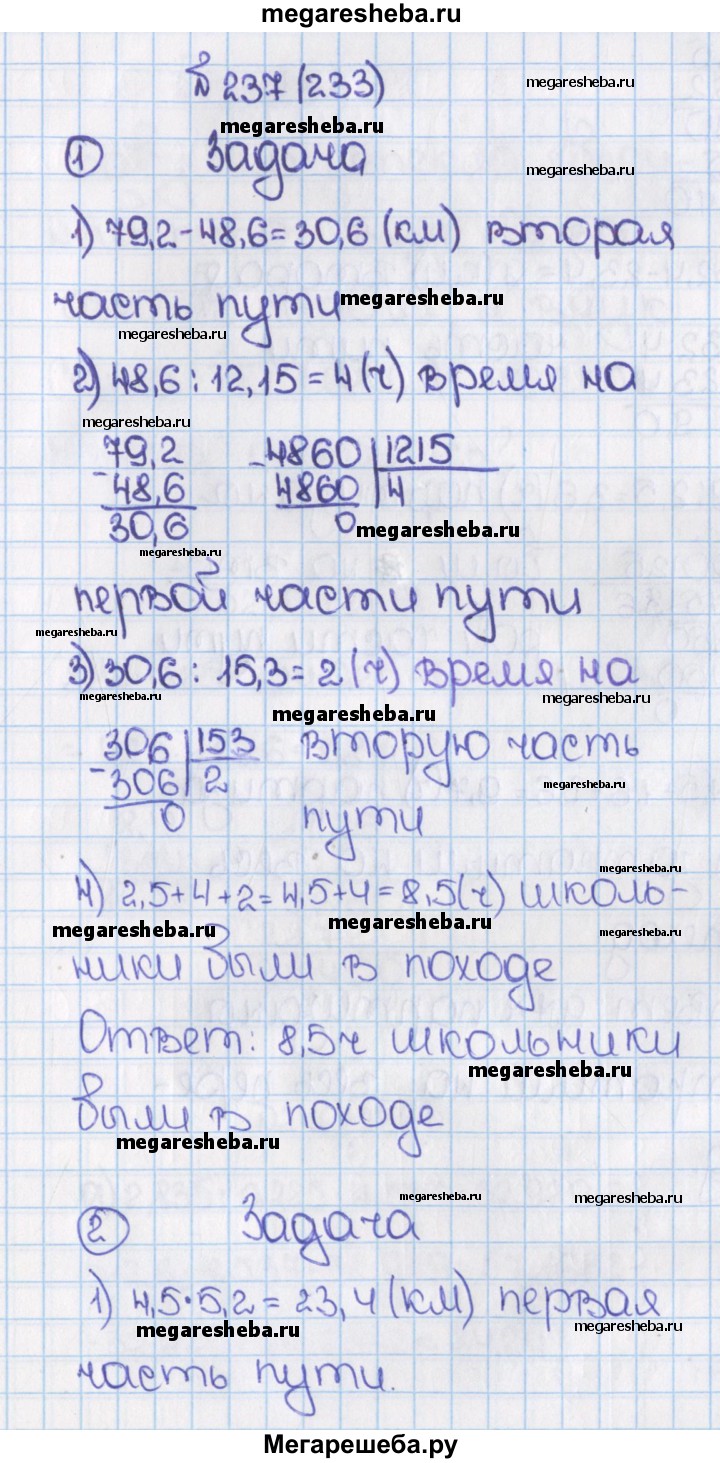 megaresheba.ru
№ 237 (233)
megaresheba.ru
megaresheba.ru
① Задача
megaresheba.ru
1) 79,2-48,6=30,6 (км) вторая
часть пути
megaresheba.ru
megaresheba.ru
2) 48,6 : 12,15 = 4 (ч) время на
megaresheba.ru
79,2 4860 1215
- 48,6 - 4860 4
30,6 0
megaresheba.ru
megaresheba.ru
первой части пути
megaresheba.ru
3) 30,6 : 15,3 = 2 (ч) время на
megaresheba.ru
megaresheba.ru
megaresheba.ru
306 153 вторую часть
- 306 2
megaresheba.ru
0 пути
megaresheba.ru
4) 2,5+4+2=4,5+4=8,5(ч) школь-
megaresheba.ru
megaresheba.ru
megaresheba.ru
ники были в походе
Ответ: 8,5ч школьники
megaresheba.ru
были в походе
megaresheba.ru
megaresheba.ru
megaresheba.ru
② Задача
1) 4,5·5,2=23,4 (км) первая
megaresheba.ru
megaresheba.ru
часть пути.
Мегарешеба.ру